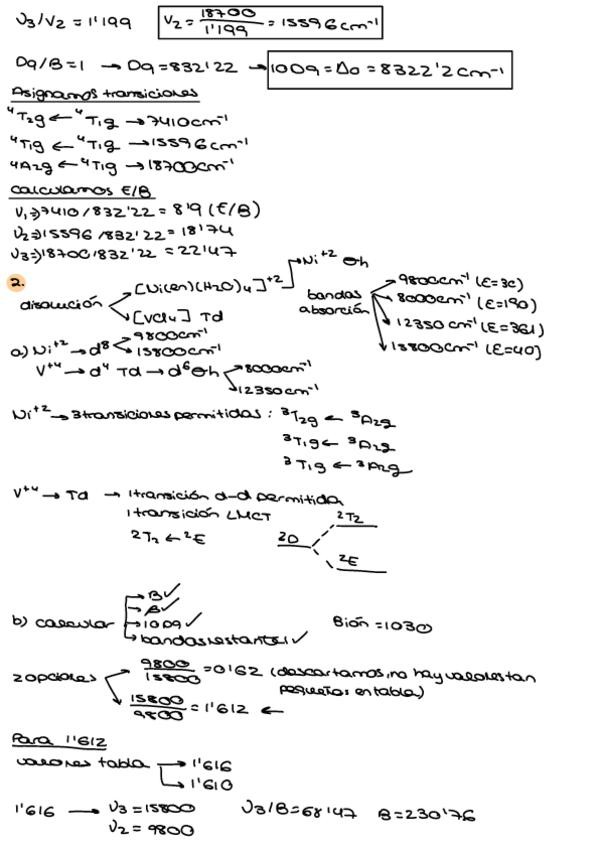 ν3/ν2 = 1'199 ν2 = 18700/1'199 = 15596 cm⁻¹
Dq/B = 1 → Dq = 832'22 → 10Dq = Δo = 8322'2 cm⁻¹
Asignamos transiciones
⁴T2g ← ⁴T1g → 7410 cm⁻¹
⁴T1g ← ⁴T1g → 15596 cm⁻¹
4A2g ← ⁴T1g → 18700 cm⁻¹
Calculamos E/B
ν1 ⇒ 7410/832'22 = 8'9 (E/B)
ν2 ⇒ 15596/832'22 = 18'74
ν3 ⇒ 18700/832'22 = 22'47
2.
disolución
[Ni(en)(H2O)4]⁺² → Ni⁺² Oh
[VCl4] Td
bandas absorción
9800 cm⁻¹ (ε=30)
8000 cm⁻¹ (ε=190)
12350 cm⁻¹ (ε=361)
15800 cm⁻¹ (ε=40)
a) Ni⁺² → d⁸
9800 cm⁻¹
15800 cm⁻¹
V⁺⁴ → d⁴ Td → d⁶ Oh
8000 cm⁻¹
12350 cm⁻¹
Ni⁺² → 3 transiciones permitidas: ³T2g ← ³A2g
³T1g ← ³A2g
³T1g ← ³A2g
V⁺⁴ → Td → 1 transición d-d permitida
1 transición LMCT
2T2 ← ²E
2D
2T2
²E
b) calcular
B ✓
β ✓
10Dq ✓
bandas restantes ✓
Bión = 1030
2 opciones
9800/15800 = 0'62 (descartamos, no hay valores tan
pequeños en tabla)
15800/9800 = 1'612 ←
Para 1'612
valores tabla → 1'616
→ 1'610
1'616 → ν3 = 15800 ν3/B = 68'47 B = 230'76
ν2 = 9800